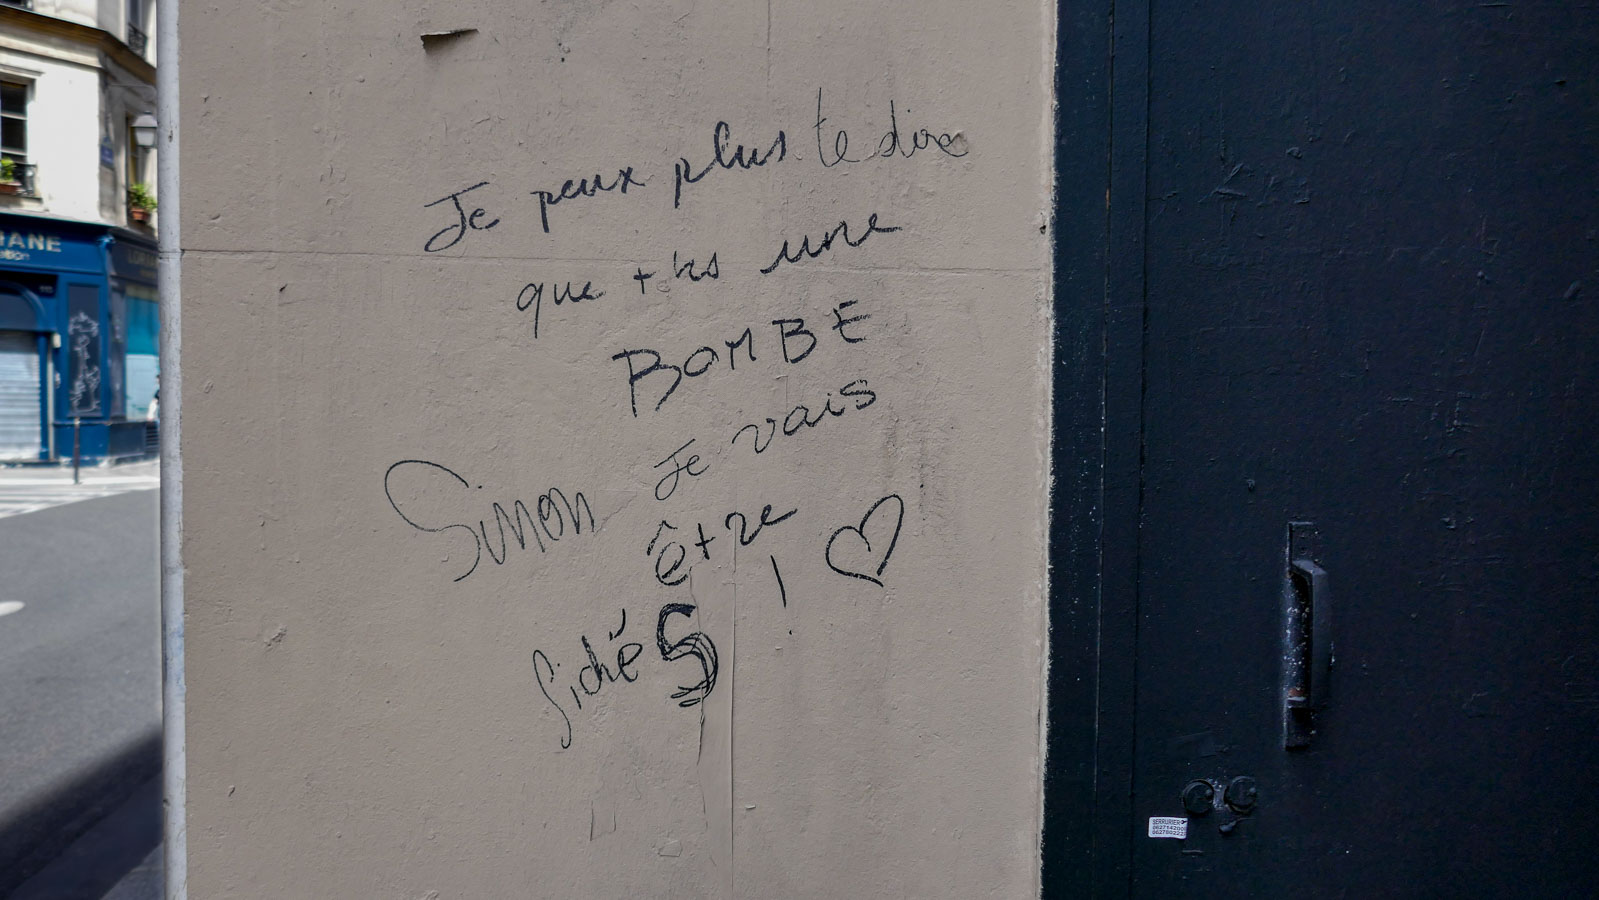 Je peux plus te dire
que t'es une
BOMBE
Sinon Je vais
être
fiché S ! ♡
TANE
SERRURIER